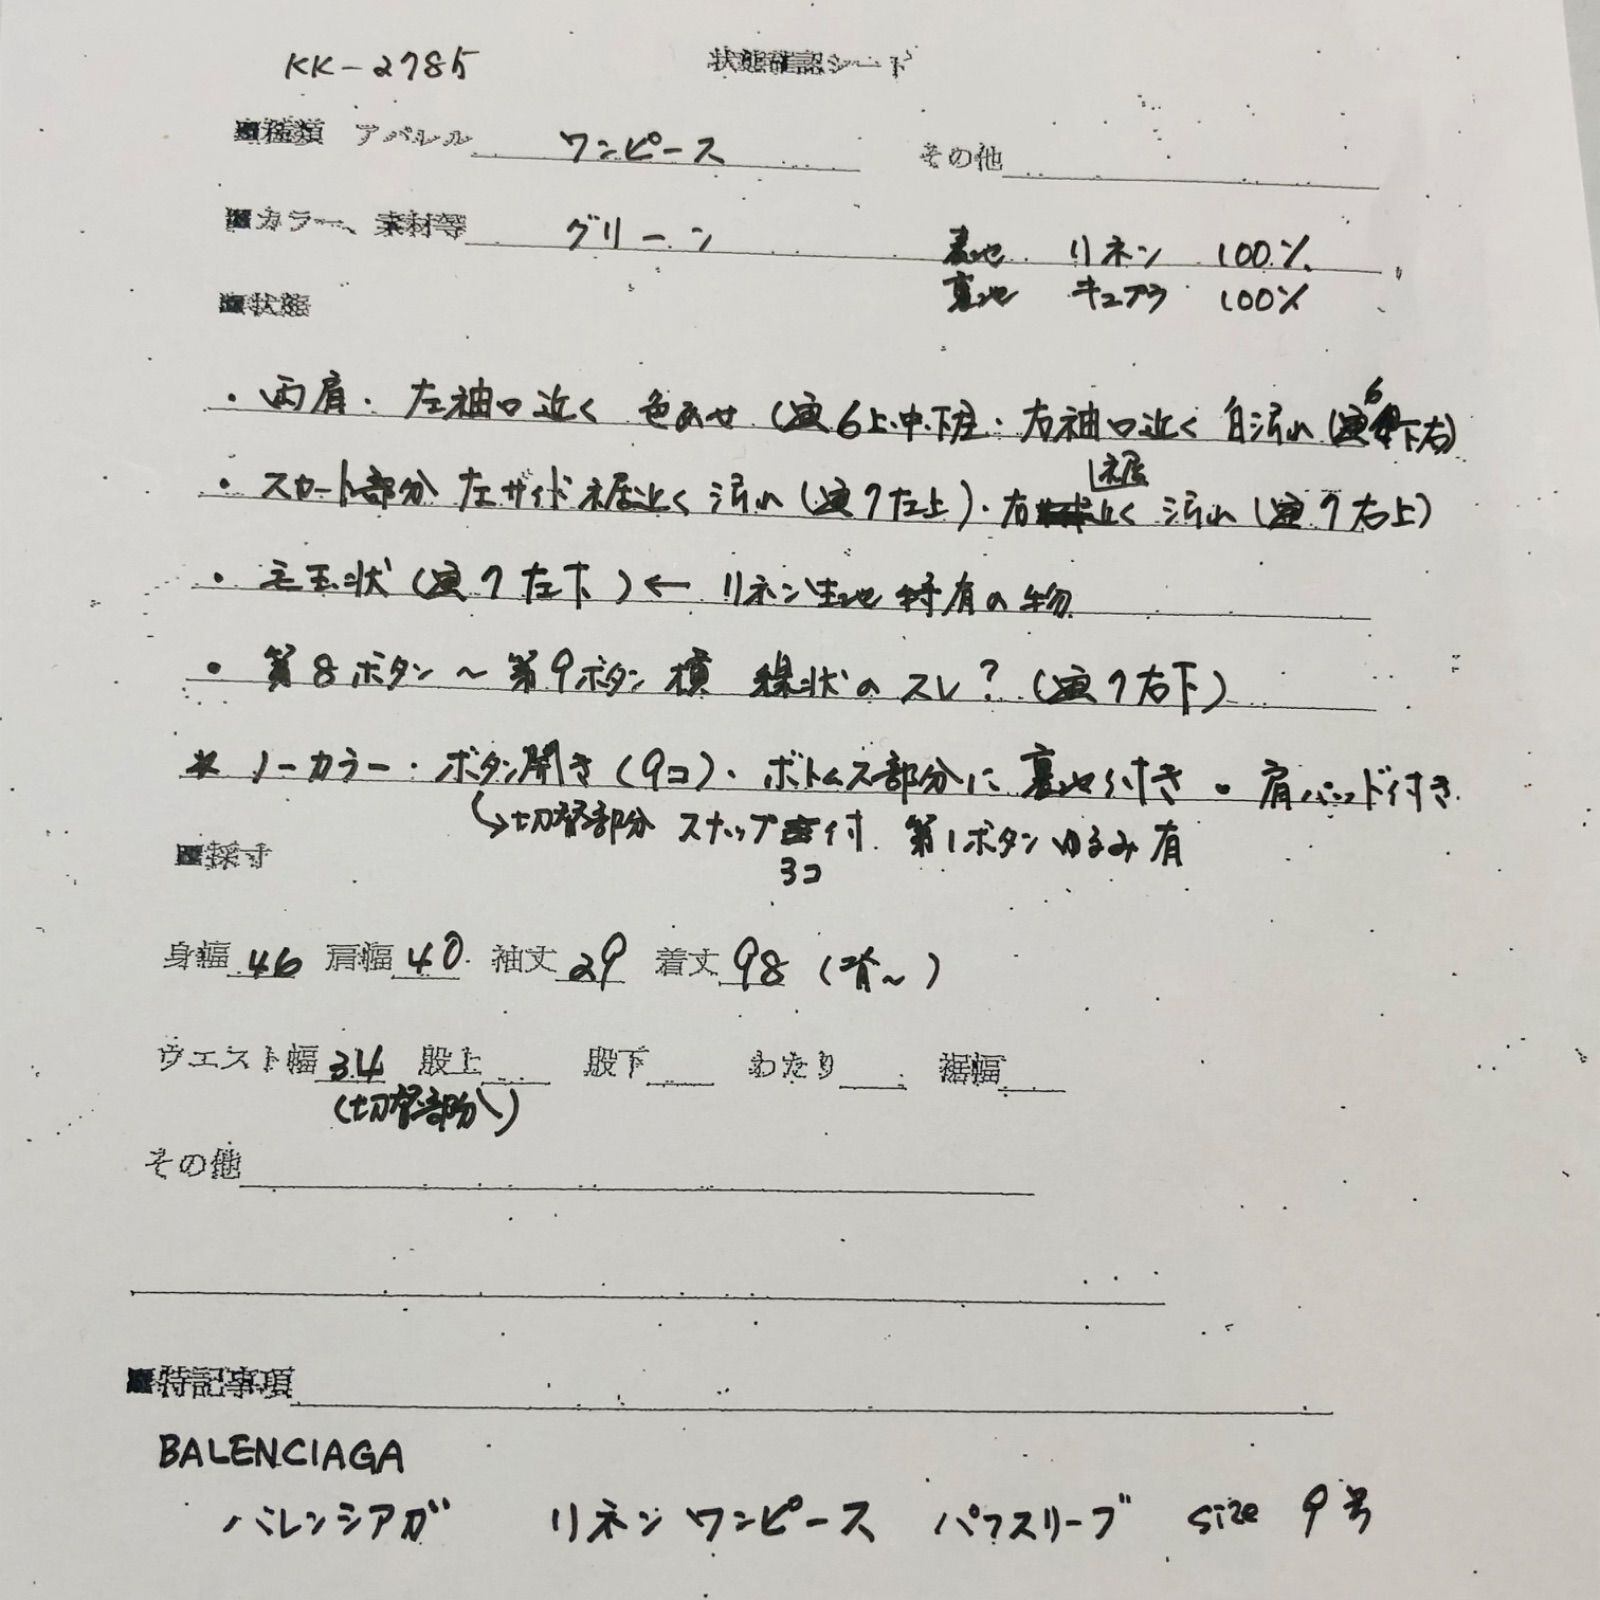 KK-2785 状態確認シート
■種類 アパレル ワンピース その他
■カラー、素材等 グリーン 表地 リネン 100%
裏地 キュプラ 100%
■状態
・両肩・左袖口近く 色あせ (画6上・中・下左・右袖口近く 白汚れ (画6下右)
・スカート部分 左サイド裾近く 汚れ (画7左上)・右裾近く 汚れ (画7右上)
・毛玉状 (画7左下) ← リネン生地特有の物
・第8ボタン～第9ボタン 横 線状のスレ? (画7右下)
* ノーカラー・ボタン開き (9コ)・ボトムス部分に 裏地付き・肩パッド付き
↳切替部分 スナップ3コ付 第1ボタンゆるみ有
■採寸
身幅 46 肩幅 40 袖丈 29 着丈 98 (背～)
ウエスト幅 34 股上 股下 わたり 裾幅
(切替部分)
その他
■特記事項
BALENCIAGA
バレンシアガ リネン ワンピース パフスリーブ size 9号